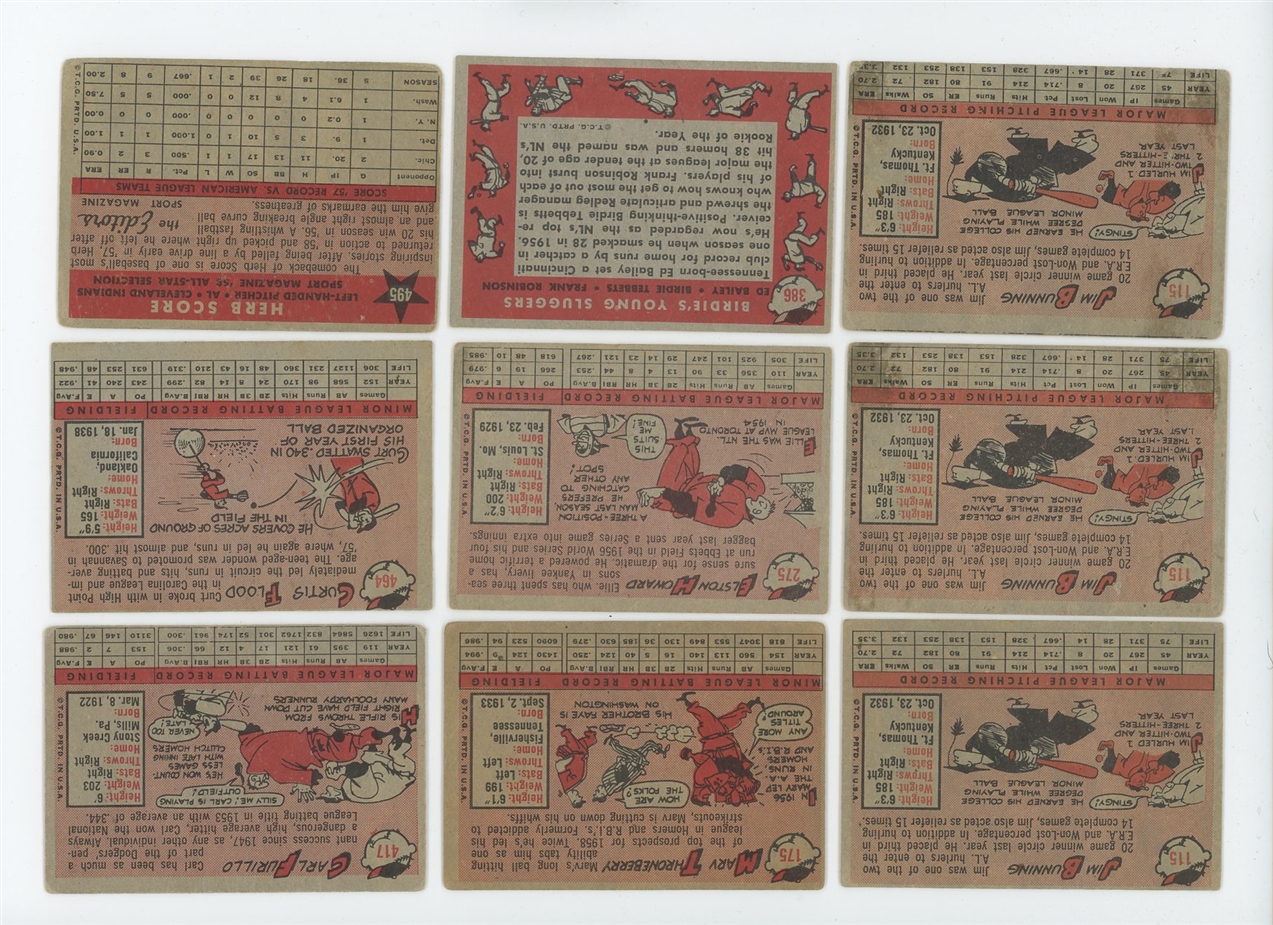 115
JIM BUNNING
Jim was one of the two
A.L. hurlers to enter the
20 game winner circle last year. He placed third in
E.R.A. and Won-Lost percentage. In addition to hurling
14 complete games, Jim also acted as reliefer 15 times.
STINGY!
JIM HURLED 1
TWO-HITTER AND
2 THREE-HITTERS
LAST YEAR.
HE EARNED HIS COLLEGE
DEGREE WHILE PLAYING
MINOR LEAGUE BALL
Height: 6'3"
Weight: 185
Bats: Right
Throws: Right
Home: Ft. Thomas, Kentucky
Born: Oct. 23, 1932
©T.C.G. PRTD. IN U.S.A.
MAJOR LEAGUE PITCHING RECORD
Games IP Won Lost Pct Hits Runs SO Walks ERA
YEAR 45 267 20 8 .714 214 91 182 72 2.70
LIFE 75 371 28 14 .667 328 153 253 132 3.35
175
MARV THRONEBERRY
Marv's long ball hitting
ability tabs him as one
of the top prospects for 1958. Twice he's led his
league in Homers and R.B.I.'s. Formerly addicted to
strikeouts, Marv is cutting down on his whiffs.
IN 1956 MARV LED THE A.A. IN RUNS HOMERS AND R.B.I.'S
ANY MORE TITLES AROUND?
HOW ARE THE FOLKS?
HIS BROTHER FAYE IS
ON WASHINGTON
Height: 6'1"
Weight: 199
Bats: Left
Throws: Left
Home: Fisherville Tennessee
Born: Sept. 2, 1933
©T.C.G. PRTD. IN U.S.A.
MINOR LEAGUE BATTING RECORD FIELDING
Games AB Runs Hits 2B 3B HR RBI B.Avg PO A E F.Avg
417
CARL FURILLO
Carl has been as much a
part of the Dodgers' pen-
nant success since 1947, as any other individual. Always
a dangerous, high average hitter, Carl won the National
League batting title in 1953 with an average of .344.
SILLY ME! CARL IS PLAYING OUTFIELD!
HE'S WON COUNT-
LESS GAMES
WITH LATE INNING
CLUTCH HOMERS
NEVER TOO LATE!
HIS RIFLE THROWS FROM
RIGHT FIELD HAVE CUT DOWN
MANY FOOLHARDY RUNNERS
Height: 6'
Weight: 203
Bats: Right
Throws: Right
Home: Stony Creek Mills, Pa.
Born: Mar. 8, 1922
©T.C.G. PRTD. IN U.S.A.
MAJOR LEAGUE BATTING RECORD FIELDING
Games AB Runs Hits 2B 3B HR RBI B.Avg PO A E F.Avg
YEAR 119 395 61 121 17 4 12 66 .306 153 7 2 .988
115
JIM BUNNING
Jim was one of the two
A.L. hurlers to enter the
20 game winner circle last year. He placed third in
E.R.A. and Won-Lost percentage. In addition to hurling
14 complete games, Jim also acted as reliefer 15 times.
STINGY!
JIM HURLED 1
TWO-HITTER AND
2 THREE-HITTERS
LAST YEAR.
HE EARNED HIS COLLEGE
DEGREE WHILE PLAYING
MINOR LEAGUE BALL
Height: 6'3"
Weight: 185
Bats: Right
Throws: Right
Home: Ft. Thomas, Kentucky
Born: Oct. 23, 1932
©T.C.G. PRTD. IN U.S.A.
MAJOR LEAGUE PITCHING RECORD
Games IP Won Lost Pct Hits Runs SO Walks ERA
YEAR 45 267 20 8 .714 214 91 182 72 2.70
LIFE 75 371 28 14 .667 328 153 253 132 3.35
275
ELSTON HOWARD
Ellie who has spent three sea-
sons in Yankee livery, has a
sure sense for the dramatic. He powered a terrific home
run at Ebbets Field in the 1956 World Series and his four
bagger last year sent a Series game into extra innings.
A THREE-POSITION
MAN LAST SEASON,
HE PREFERS
CATCHING TO
ANY OTHER
SPOT!
THIS SUITS ME FINE!
ELLIE WAS THE INT'L.
LEAGUE MVP AT TORONTO
IN 1954
Height: 6'2"
Weight: 200
Bats: Right
Throws: Right
Home: St. Louis, Mo.
Born: Feb. 23, 1929
©T.C.G. PRTD. IN U.S.A.
MAJOR LEAGUE BATTING RECORD FIELDING
Games AB Runs Hits 2B 3B HR RBI B.Avg PO A E F.Avg
YEAR 110 356 33 90 13 4 8 44 .253 266 19 6 .979
LIFE 305 925 101 247 29 14 23 .267 618 48 10 .985
464
CURTIS FLOOD
Curt broke in with High Point
in the Carolina League and im-
mediately led the circuit in runs, hits and batting aver-
age. The teen-aged wonder was promoted to Savannah in
'57, where again he led in runs, and almost hit .300.
HE COVERS ACRES OF GROUND
IN THE FIELD
CURT SWATTED .340 IN
HIS FIRST YEAR OF
ORGANIZED BALL
Height: 5'9"
Weight: 165
Bats: Right
Throws: Right
Home: Oakland, California
Born: Jan. 18, 1938
©T.C.G. PRTD. IN U.S.A.
MINOR LEAGUE BATTING RECORD FIELDING
Games AB Runs Hits 2B 3B HR RBI B.Avg PO A E F.Avg
YEAR 152 568 98 170 24 8 14 82 .299 243 240 41 .922
LIFE 306 1127 231 360 48 16 43 210 .319 631 253 48 .948
115
JIM BUNNING
Jim was one of the two
A.L. hurlers to enter the
20 game winner circle last year. He placed third in
E.R.A. and Won-Lost percentage. In addition to hurling
14 complete games, Jim also acted as reliefer 15 times.
STINGY!
JIM HURLED 1
TWO-HITTER AND
2 THREE-HITTERS
LAST YEAR.
HE EARNED HIS COLLEGE
DEGREE WHILE PLAYING
MINOR LEAGUE BALL
Height: 6'3"
Weight: 185
Bats: Right
Throws: Right
Home: Ft. Thomas, Kentucky
Born: Oct. 23, 1932
©T.C.G. PRTD. IN U.S.A.
MAJOR LEAGUE PITCHING RECORD
Games IP Won Lost Pct Hits Runs SO Walks ERA
YEAR 45 267 20 8 .714 214 91 182 72 2.70
LIFE 75 371 28 14 .667 328 153 253 132 3.35
386
BIRDIE'S YOUNG SLUGGERS
ED BAILEY • BIRDIE TEBBETS • FRANK ROBINSON
Tennessee-born Ed Bailey set a Cincinnati
club record for home runs by a catcher in
one season when he smacked 28 in 1956.
He's now regarded as the NL's top re-
ceiver. Positive-thinking Birdie Tebbetts is
the shrewd and articulate Redleg manager
who knows how to get the most out of each
of his players. Frank Robinson burst into
the major leagues at the tender age of 20,
hit 38 homers and was named the NL's
Rookie of the Year.
©T.C.G. PRTD. U.S.A.
495
HERB SCORE
LEFT-HANDED PITCHER • AL • CLEVELAND INDIANS
SPORT MAGAZINE '58 ALL-STAR SELECTION
The comeback of Herb Score is one of baseball's most
inspiring stories. After being felled by a line drive early in '57, Herb
returned to action in '58 and picked up right where he left off after
his 20 win season in '56. A whistling fastball
and an almost right angle breaking curve ball
give him the earmarks of greatness.
the Editors
SPORT MAGAZINE
SCORE '57 RECORD VS. AMERICAN LEAGUE TEAMS
Opponent G IP H BB SO W L Pct. R ER ERA
Chic. 2 20. 11 13 17 1 1 .500 3 2 0.90
Det. 1 9. 3 5 10 1 0 1.000 1 1 1.00
N. Y. 1 0.2 0 0 0 0 0 .000 0 0 0.00
Wash. 1 6.1 4 8 12 0 0 .000 5 5 7.50
SEASON 5 36. 18 26 39 2 1 .667 9 8 2.00
©T.C.G. PRTD. IN U.S.A.